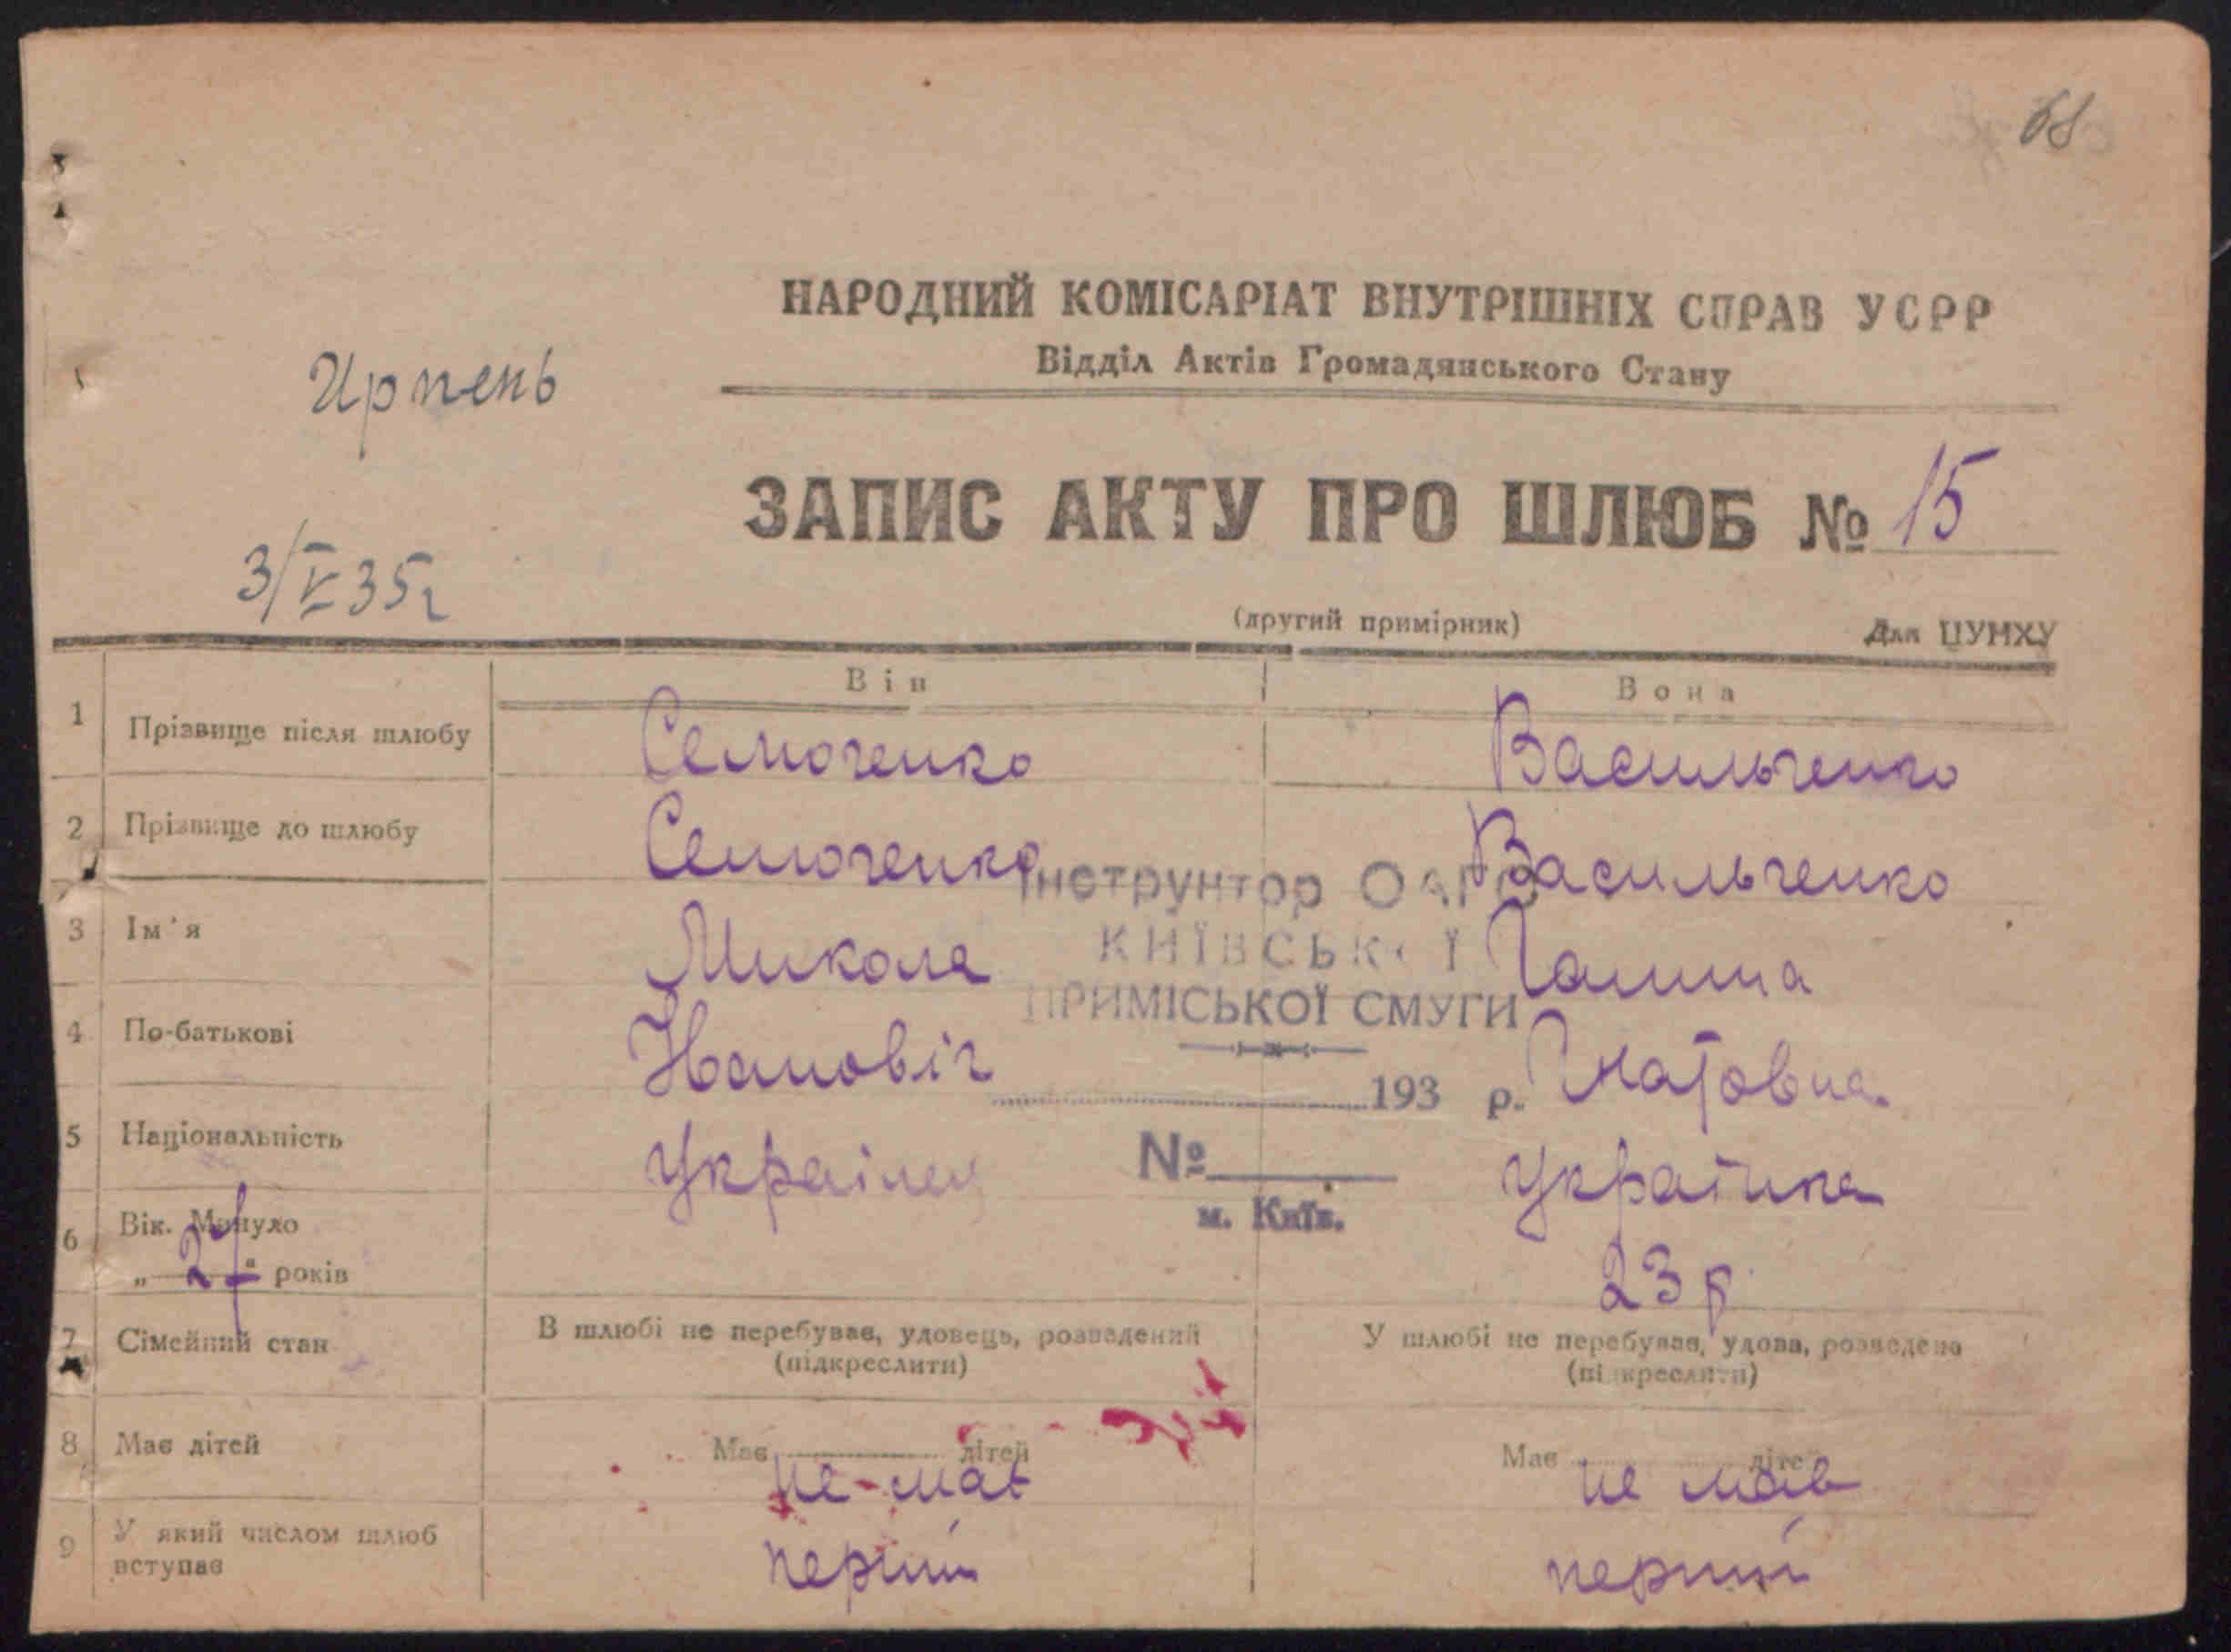 68
НАРОДНИЙ КОМІСАРІАТ ВНУТРІШНІХ СПРАВ УСРР
Відділ Актів Громадянського Стану
Ирпень
ЗАПИС АКТУ ПРО ШЛЮБ № 15
3/V 35г
(другий примірник) Для ЦУНХУ
Він Вона
1 Прізвище після шлюбу Семюченко Васильченко
2 Прізвище до шлюбу Семюченко Васильченко
Інструктор ОАГС
3 Ім'я Микола Галина
КИЇВСЬКОЇ
ПРИМІСЬКОЇ СМУГИ
4 По-батькові Івановіч Гнатовна
193 р.
5 Національність Українец Українка
№
м. Київ.
6 Вік. Минуло
„27" років 23 р
7 Сімейний стан В шлюбі не перебував, удовець, розведений У шлюбі не перебувала, удова, розведена
(підкреслити) (підкреслити)
8 Має дітей Має дітей Має дітей
не має не має
9 У який числом шлюб вступає перший перший